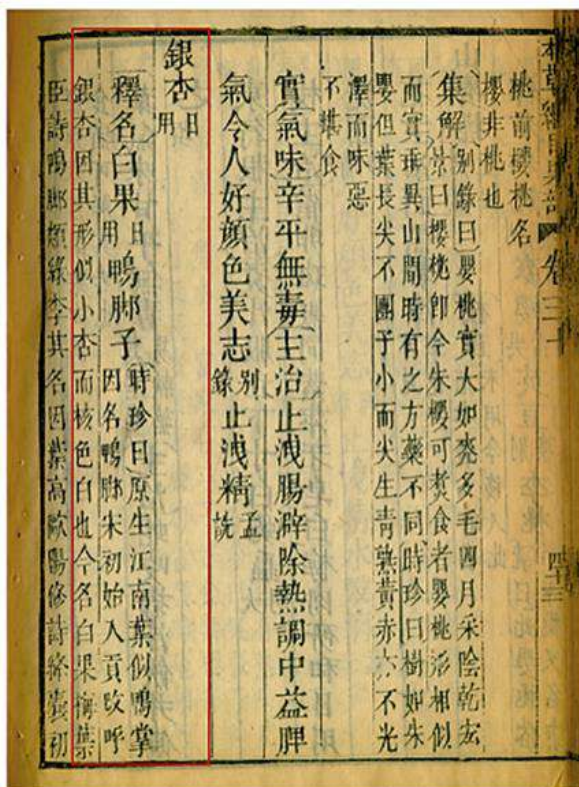 本草綱目果部 卷三十 四十三
桃前櫻桃名
櫻非桃也
集解別錄曰嬰桃實大如麥多毛四月采陰乾弘
景曰櫻桃卽今朱櫻可煑食者嬰桃形相似
而實乖異山間時有之方藥不同時珍曰樹如朱
嬰但葉長尖不團子小而尖生青熟黃赤亦不光
澤而味惡
不堪食
實氣味辛平無毒主治止洩腸澼除熱調中益脾
氣令人好顔色美志別錄止洩精孟詵
銀杏日用
釋名白果日用鴨脚子時珍曰原生江南葉似鴨掌
因名鴨脚宋初始入貢改呼
銀杏因其形似小杏而核色白也今名白果梅堯
臣詩鴨脚類綠李其名因葉高歐陽修詩絳囊初